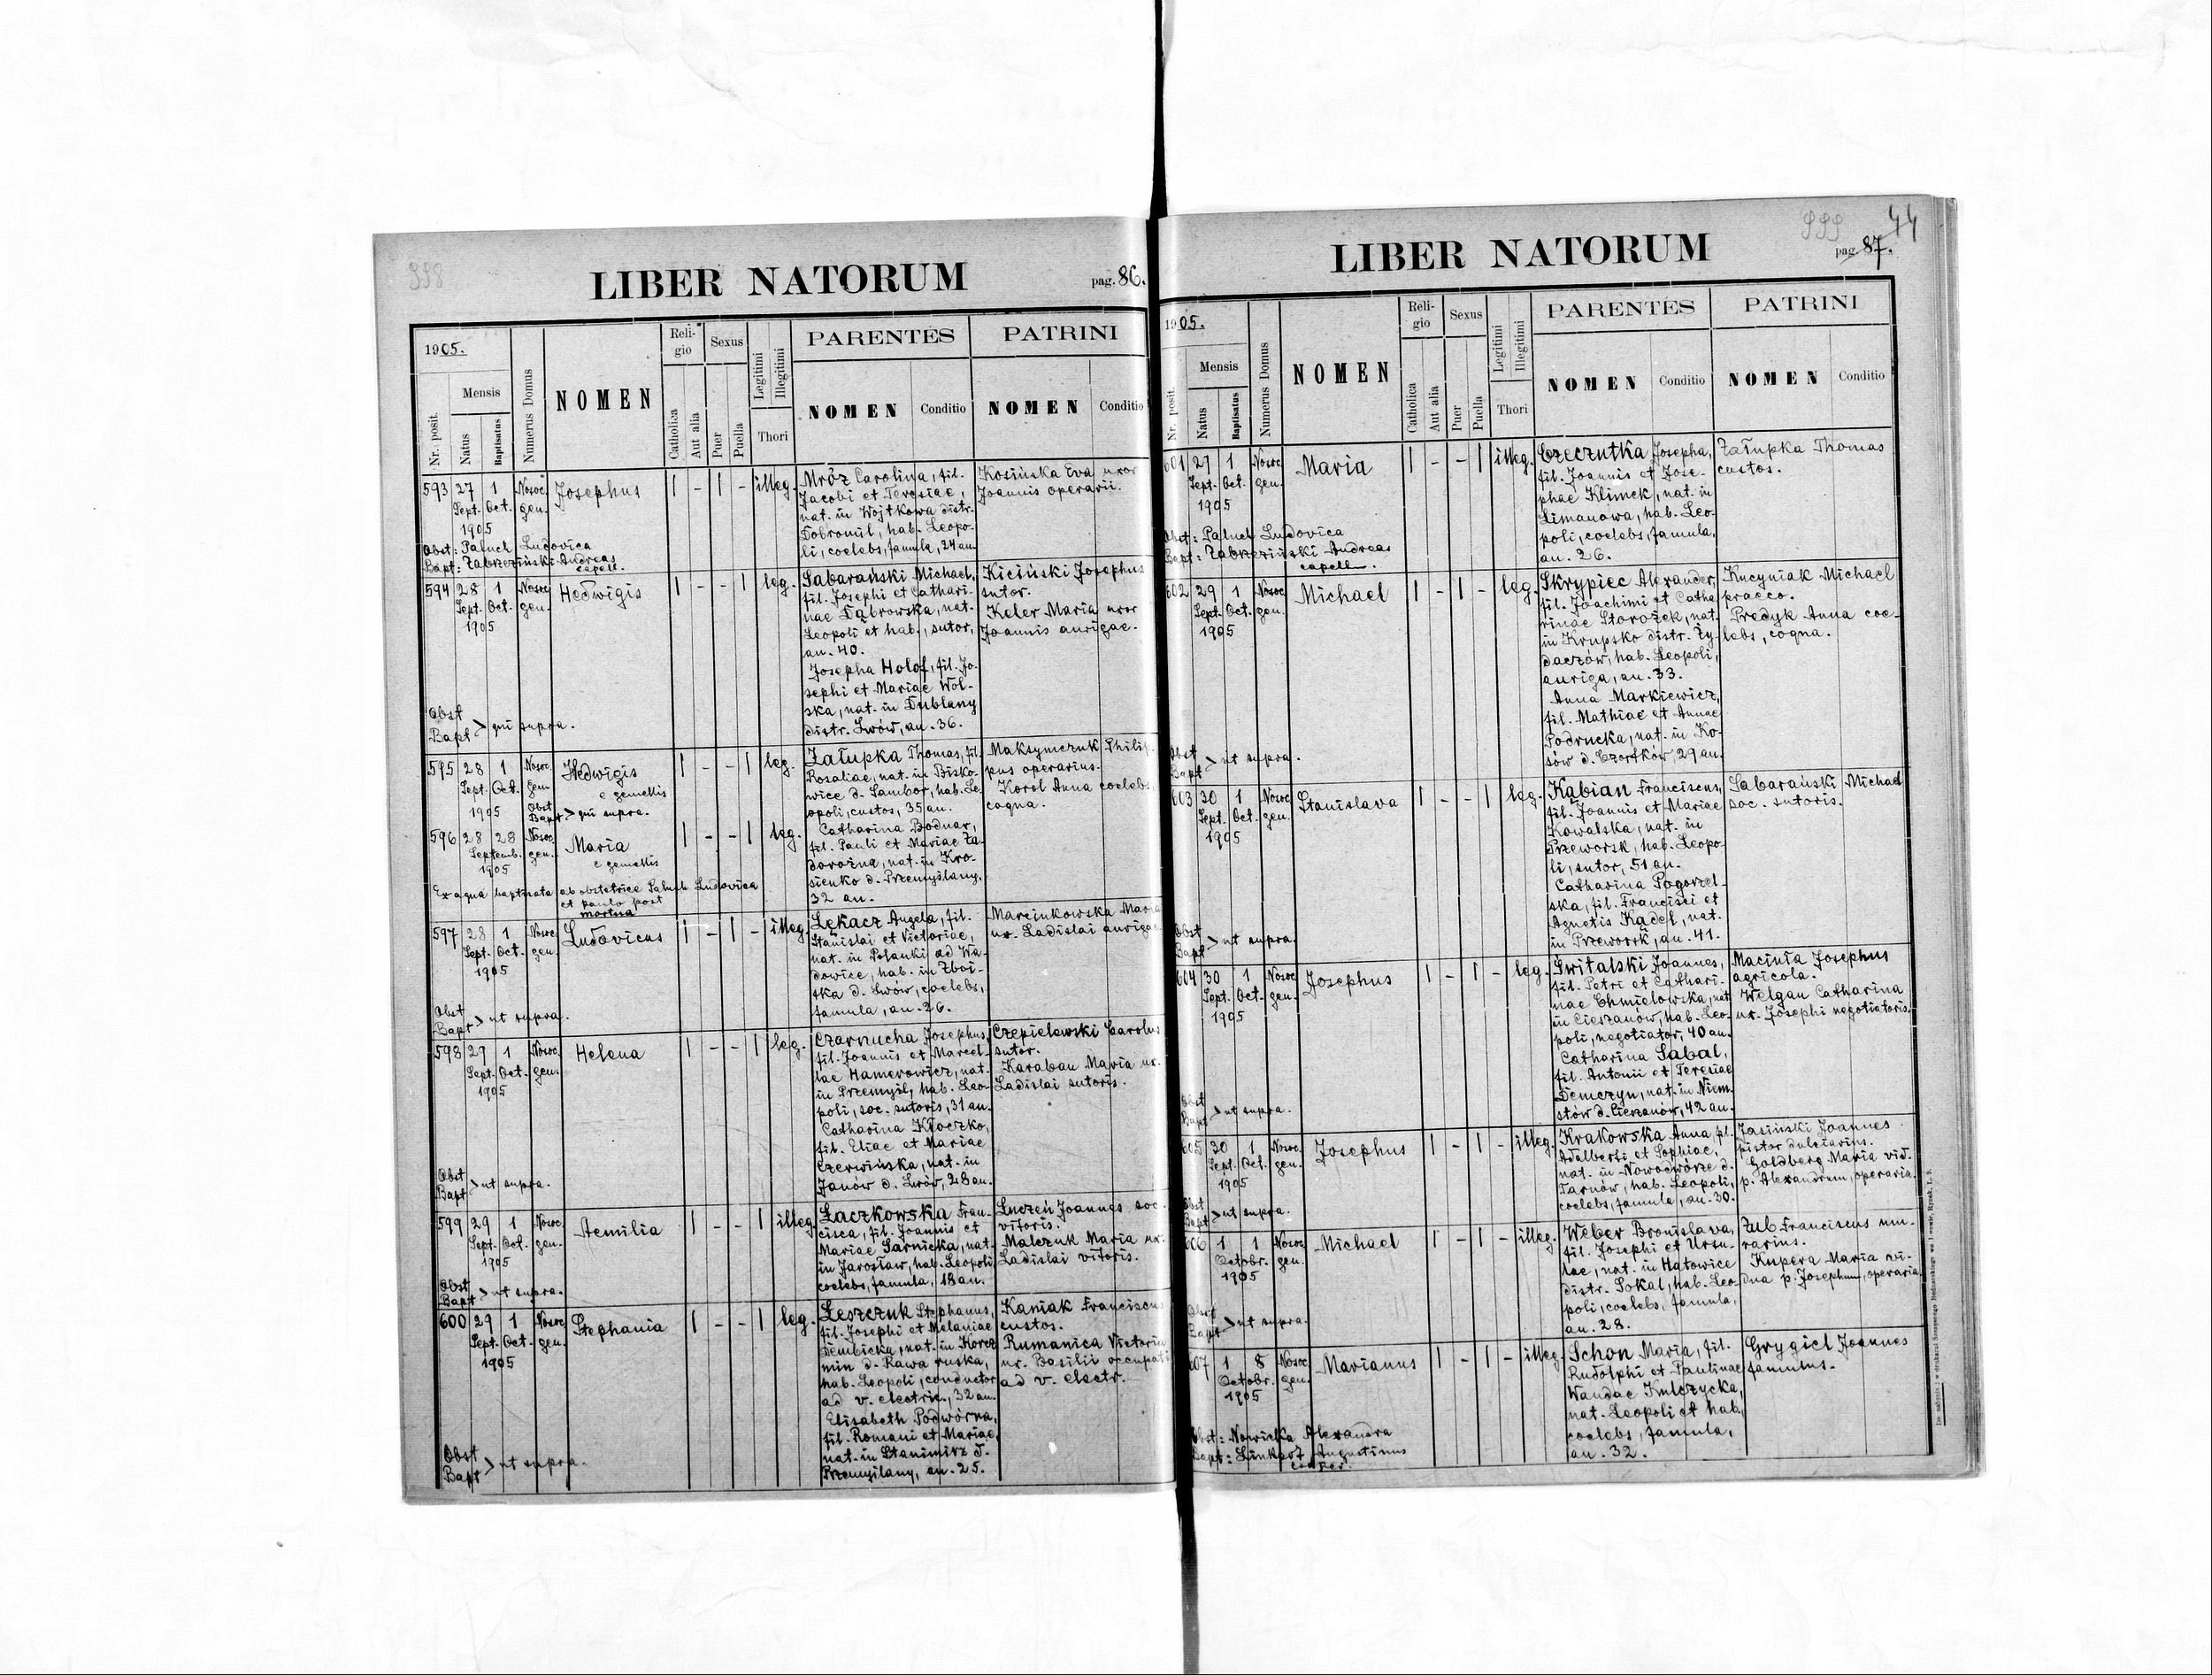 LIBER NATORUM
pag. 86.
1905.
Nr. posit.
Mensis
Natus
Baptisatus
Numerus Domus
NOMEN
Reli-
gio
Catholica
Aut alia
Sexus
Puer
Puella
Legitimi
Illegitimi
Thori
PARENTES
NOMEN
Conditio
PATRINI
NOMEN
Conditio
593 27 1 Nosoc. Josephus | - | - illeg.
Sept. Oct. gen.
1905
Obst: Paluch Ludovica
Bapt: Zabrzeziński Andreas
capell.
Mróz Carolina, fil.
Jacobi et Teresiae,
nat. in Wojtkowa distr.
Dobromil, hab. Leopo-
li, coelebs, famula, 24 an.
Kosińska Eva uxor
Joannis operarii.
594 28 1 Nosoc. Hedwigis | - - | leg.
Sept. Oct. gen.
1905
Obst
Bapt > qui supra.
Sabarański Michael,
fil. Josephi et Cathari-
nae Dąbrowska, nat.
Leopoli et hab., sutor,
an. 40.
Josepha Holof, fil. Jo-
sephi et Mariae Wol-
ska, nat. in Dublany
distr. Lwów, an. 36.
Kiciński Josephus
sutor.
Keler Maria uxor
Joannis aurigae.
595 28 1 Nosoc. Hedwigis | - - | leg.
Sept. Oct. gen. e gemellis
1905 Obst
Bapt > qui supra.
596 28 28 Nosoc. Maria | - - | leg.
Septemb. gen. e gemellis
1905
Ex aqua baptisata ab obstetrice Paluch Ludovica
et paulo post
mortua
Załupka Thomas, fil.
Rosaliae, nat. in Bisko-
wice d. Sambor, hab. Le-
opoli, custos, 35 an.
Catharina Bodnar,
fil. Pauli et Mariae Za-
dorożna, nat. in Kro-
sienko d. Przemyślany,
32 an.
Maksymczuk Philip-
pus operarius.
Korol Anna coelebs,
cogna.
597 28 1 Nosoc. Ludovicus | - | - illeg.
Sept. Oct. gen.
1905
Obst
Bapt > ut supra.
Lękacz Angela, fil.
Stanislai et Victoriae,
nat. in Polanki ad Wa-
dowice, hab. in Zboi-
ska d. Lwów, coelebs,
famula, an. 26.
Marcinkowska Maria
ux. Ladislai aurigae
598 29 1 Nosoc. Helena | - - | leg.
Sept. Oct. gen.
1905
Obst
Bapt > ut supra.
Czarnucha Josephus,
fil. Joannis et Marcel-
lae Hamerowicz, nat.
in Przemyśl, hab. Leo-
poli, soc. sutoris, 31 an.
Catharina Kłoczko,
fil. Eliae et Mariae
Czerwińska, nat. in
Janów d. Lwów, 28 an.
Czepielewski Carolus
sutor.
Karaban Maria ux.
Ladislai sutoris.
599 29 1 Nosoc. Aemilia | - - | illeg.
Sept. Oct. gen.
1905
Obst
Bapt > ut supra.
Łaczkowska Fran-
cisca, fil. Joannis et
Mariae Sarnicka, nat.
in Jarosław, hab. Leopoli,
coelebs, famula, 18 an.
Łuczeń Joannes soc.
vitoris.
Malczuk Maria ux.
Ladislai vitoris.
600 29 1 Nosoc. Stephania | - - | leg.
Sept. Oct. gen.
1905
Obst
Bapt > ut supra.
Leszczuk Stephanus,
fil. Josephi et Melaniae
Dembicka, nat. in Korcz
min d. Rawa ruska,
hab. Leopoli, conductor
ad v. electric., 32 an.
Elisabeth Podwórna,
fil. Romani et Mariae,
nat. in Stanimirz d.
Przemyślany, an. 25.
Kaniak Franciscus
custos.
Rumanica Victoria
ux. Basilii occupati
ad v. electr.
LIBER NATORUM
pag. 87.
44
1905.
Nr. posit.
Mensis
Natus
Baptisatus
Numerus Domus
NOMEN
Reli-
gio
Catholica
Aut alia
Sexus
Puer
Puella
Legitimi
Illegitimi
Thori
PARENTES
NOMEN
Conditio
PATRINI
NOMEN
Conditio
601 29 1 Nosoc. Maria | - - | illeg.
Sept. Oct. gen.
1905
Obst: Paluch Ludovica
Bapt: Zabrzeziński Andreas
capellan.
Czeczutka Josepha,
fil. Joannis et Jose-
phae Klimek, nat. in
Limanowa, hab. Leo-
poli, coelebs, famula,
an. 26.
Załupka Thomas
custos.
602 29 1 Nosoc. Michael | - | - leg.
Sept. Oct. gen.
1905
Obst
Bapt > ut supra.
Skrypiec Alexander,
fil. Joachimi et Catha-
rinae Storożek, nat.
in Krupsko distr. Ży-
daczów, hab. Leopoli,
auriga, an. 33.
Anna Markiewicz,
fil. Mathiae et Annae
Podrucka, nat. in Ko-
sów d. Czortków, 29 an.
Kucyniak Michael
praeco.
Predyk Anna coe-
lebs, cogna.
603 30 1 Nosoc. Stanislava | - - | leg.
Sept. Oct. gen.
1905
Obst
Bapt > ut supra.
Kabian Franciscus,
fil. Joannis et Mariae
Kowalska, nat. in
Przeworsk, hab. Leopo-
li, sutor, 51 an.
Catharina Pogorzel-
ska, fil. Francisci et
Agnetis Kądel, nat.
in Przeworsk, an. 41.
Sabarański Michael
soc. sutoris.
604 30 1 Nosoc. Josephus | - | - leg.
Sept. Oct. gen.
1905
Obst
Bapt > ut supra.
Świtalski Joannes,
fil. Petri et Cathari-
nae Chmielowska, nat.
in Cieszanów, hab. Leo-
poli, negotiator, 40 an.
Catharina Sabal,
fil. Antonii et Teresiae
Demczyn, nat. in Niem-
stów d. Cieszanów, 42 an.
Maciuła Josephus
agricola.
Welgan Catharina
ux. Josephi negotiatoris.
605 30 1 Nosoc. Josephus | - | - illeg.
Sept. Oct. gen.
1905
Obst
Bapt > ut supra.
Krakowska Anna, fil.
Adalberti et Sophiae,
nat. in Nowodwórze d.
Tarnów, hab. Leopoli,
coelebs, famula, an. 30.
Jasiński Joannes
pistor dulciarius.
Goldberg Maria vid.
p. Alexandrum, operaria.
606 1 1 Nosoc. Michael | - | - illeg.
Octobr. gen.
1905
Obst
Bapt > ut supra.
Weber Bronislava,
fil. Josephi et Ursu-
lae, nat. in Hatowice
distr. Sokal, hab. Leo-
poli, coelebs, famula,
an. 28.
Żub Franciscus mu-
rarius.
Kupera Maria vi-
dua p. Josephum, operaria.
607 1 8 Nosoc. Marianus | - | - illeg.
Octobr. gen.
1905
Obst: Nowicka Alexandra
Bapt: Augustinus
Schon Maria, fil.
Rudolphi et Paulinae
Wandae Kulczycka,
nat. Leopoli et hab.
coelebs, famula,
an. 32.
Grygiel Joannes
famulus.